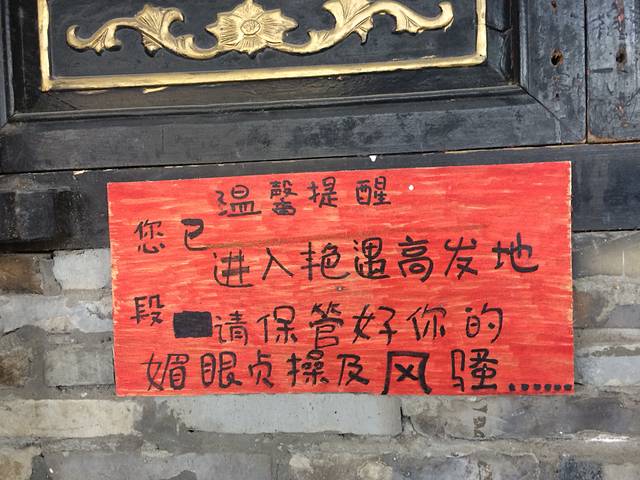 温馨提醒
您已进入艳遇高发地
段请保管好你的
媚眼贞操及风骚……